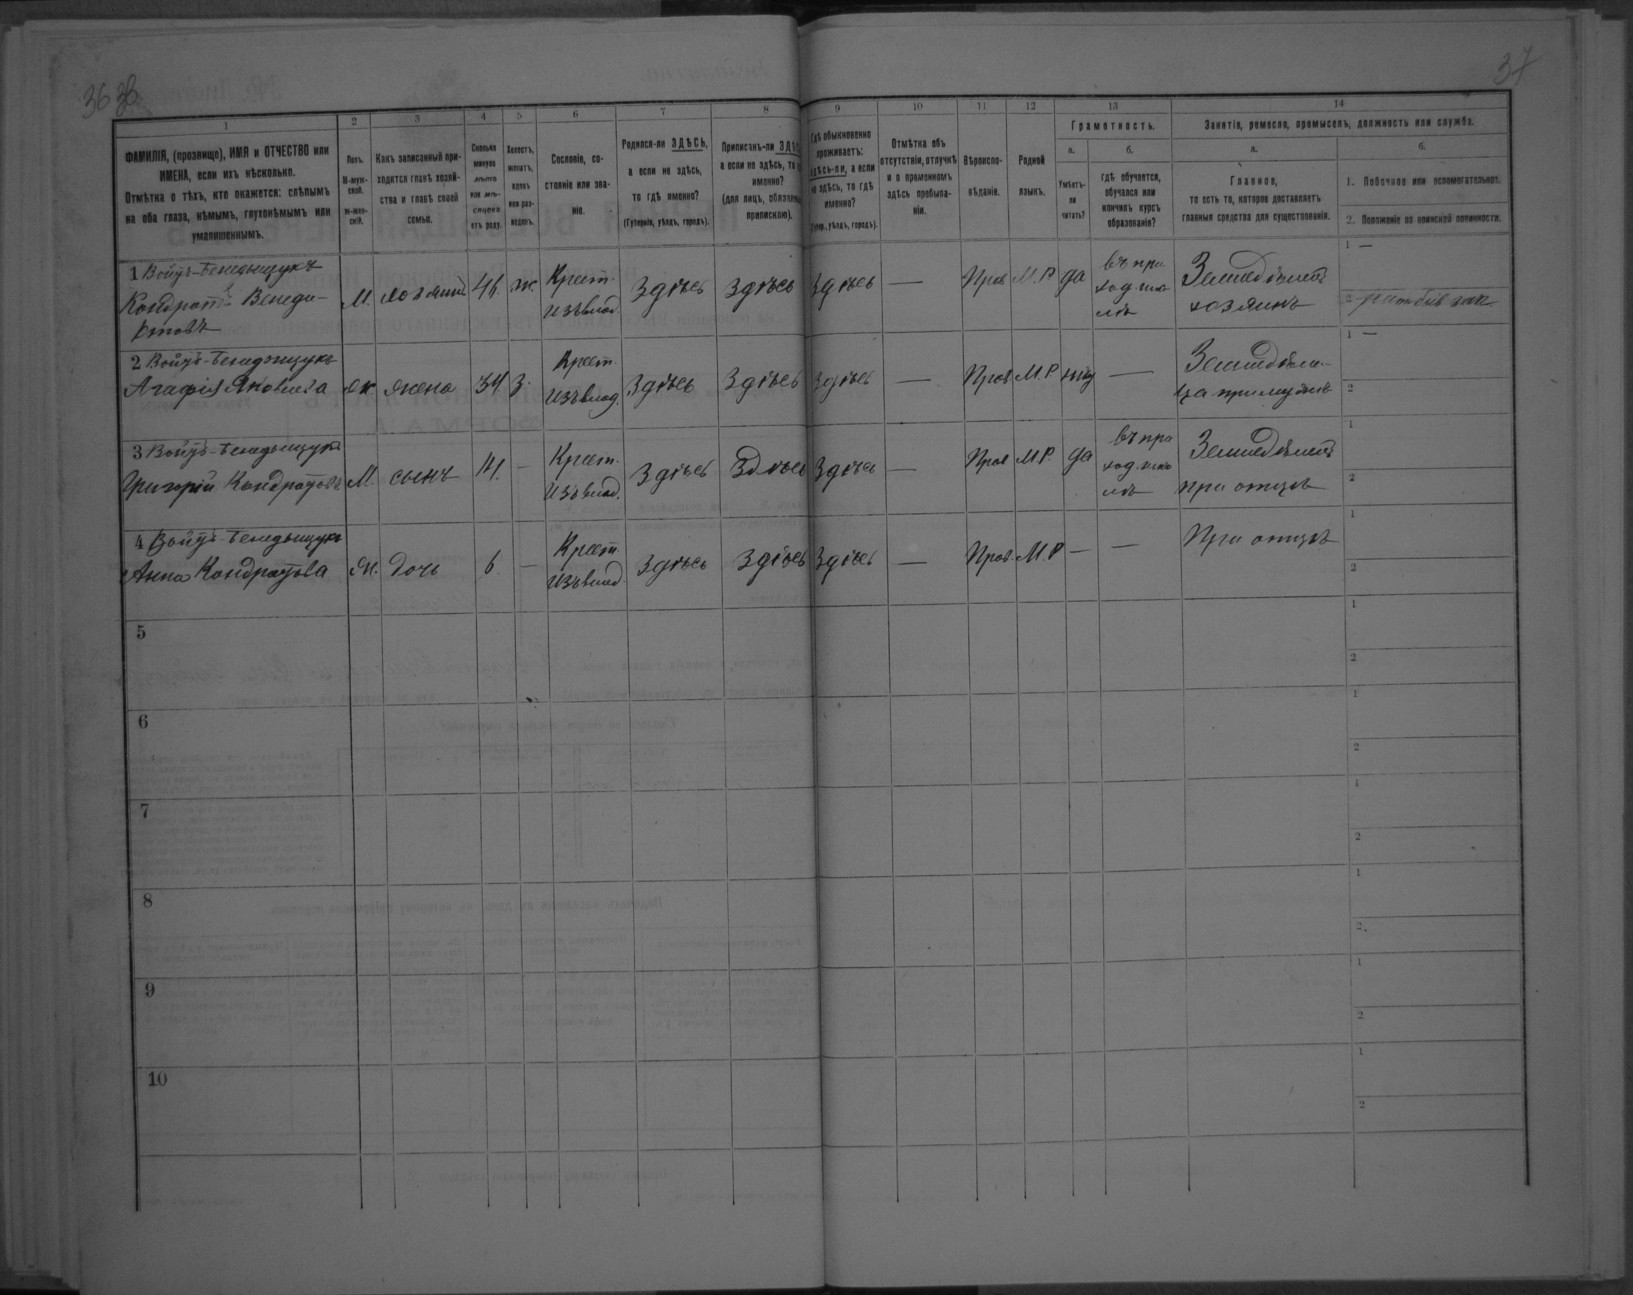 36 36
37
1 2 3 4 5 6 7 8 9 10 11 12 13 14
ФАМИЛІЯ, (прозвище), ИМЯ и ОТЧЕСТВО или
ИМЕНА, если ихъ нѣсколько.
Отмѣтка о тѣхъ, кто окажется: слѣпымъ
на оба глаза, нѣмымъ, глухонѣмымъ или
умалишеннымъ.
Полъ.
М-муж-
ской.
Ж-жен-
скій.
Какъ записанный при-
ходится главѣ хозяй-
ства и главѣ своей
семьи.
Сколько
минуло
лѣтъ
или мѣ-
сяцевъ
отъ роду.
Холостъ,
женатъ,
вдовъ
или раз-
веденъ.
Сословіе, со-
стояніе или зва-
ніе.
Родился-ли ЗДѢСЬ,
а если не здѣсь,
то гдѣ именно?
(Губернія, уѣздъ, городъ).
Приписанъ-ли
а если не здѣсь, то
именно?
(для лицъ, обязанныхъ
припискою).
Гдѣ обыкновенно
проживаетъ:
здѣсь-ли, а если
не здѣсь, то гдѣ
именно?
(Губер., уѣздъ, городъ).
Отмѣтка объ
отсутствіи, отлучкѣ
и о временномъ
здѣсь пребыва-
ніи.
Вѣроиспо-
вѣданіе.
Родной
языкъ.
Грамотность.
а.
Умѣетъ-
ли
читать?
б.
гдѣ обучается,
обучался или
кончилъ курсъ
образованія?
Занятія, ремесло, промыселъ, должность или служба.
а.
Главное,
то есть то, которое доставляетъ
главныя средства для существованія.
б.
1. Побочное или вспомогательное.
2. Положеніе по воинской повинности.
1 Войтъ-Бенедыщукъ
Кондратъ Венеди-
ктовъ
М. хозяинъ 46 ж. Крест. изъ влад. Здѣсь Здѣсь Здѣсь — Прав М.Р да въ при ход. шко лѣ Земледѣлецъ хозяинъ
1 —
2
2 Войтъ-Бенедыщукъ
Агафія Яковлева
Ж жена 34 з. Крест. изъ влад. Здѣсь Здѣсь Здѣсь — Прав М.Р нѣтъ — Земледѣли- ца при мужѣ
1 —
2
3 Войтъ-Бенедыщукъ
Григорій Кондратовъ
М сынъ 14. — Крест. изъ влад. Здѣсь Здѣсь Здѣсь — Прав М.Р да въ при ход. шко лѣ Земледѣлецъ при отцѣ
1
2
4 Войтъ-Бенедыщукъ
Анна Кондратова
Ж. дочь 6 — Крест. изъ влад Здѣсь Здѣсь Здѣсь — Прав М.Р — — При отцѣ
1
2
5
1
2
6
1
2
7
1
2
8
1
2.
9
1
2
10
1
2